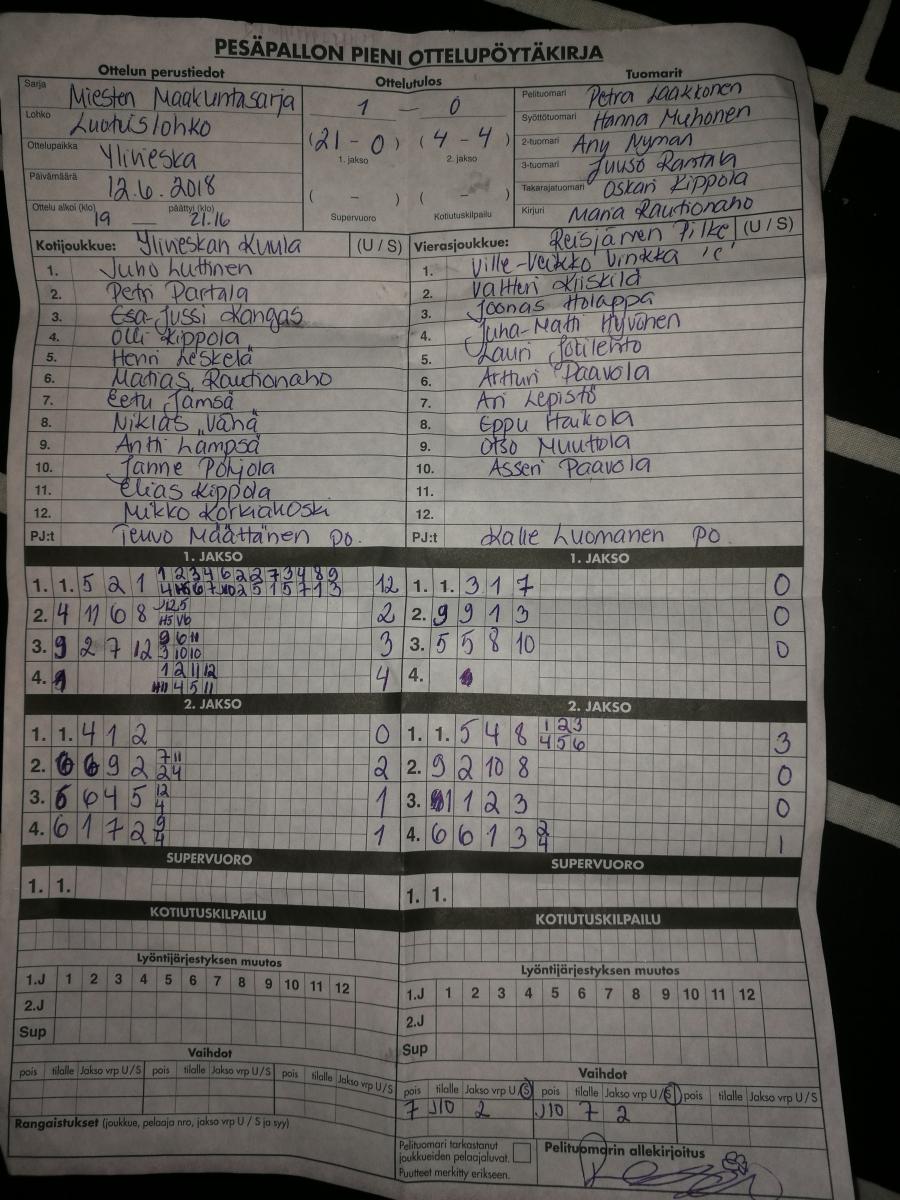 PESÄPALLON PIENI OTTELUPÖYTÄKIRJA
Ottelun perustiedot
Sarja Miesten Maakuntasarja
Lohko Luotuislohko
Ottelupaikka Ylivieska
Päivämäärä 12.6.2018
Ottelu alkoi (klo) 19 päättyi (klo) 21.16
Ottelutulos
1 — 0
(21 - 0) (4 - 4)
1. jakso 2. jakso
( - ) ( - )
Supervuoro Kotiutuskilpailu
Tuomarit
Pelituomari Petra Laakkonen
Syöttötuomari Hanna Muhonen
2-tuomari Any Nyman
3-tuomari Juuso Rantala
Takarajatuomari Oskari Kippola
Kirjuri Maria Rautionaho
Kotijoukkue: Ylivieskan Kuula (U / S)
1. Juho Luttinen
2. Petri Partala
3. Esa-Jussi Kangas
4. Olli Kippola
5. Henri Leskelä
6. Matias Rautionaho
7. Eetu Jämsä
8. Niklas Vähä
9. Antti Lampsä
10. Janne Pohjola
11. Elias Kippola
12. Mikko Korkiakoski
PJ:t Teuvo Määttänen PO.
Vierasjoukkue: Reisjärven Pilke (U / S)
1. Ville-Veikko Vinkka 'c'
2. Valtteri Kiiskilä
3. Joonas Holappa
4. Juha-Matti Hyvönen
5. Lauri Jotilehto
6. Artturi Paavola
7. Ari Lepistö
8. Eppu Haikola
9. Otso Muuttola
10. Asseri Paavola
11.
12.
PJ:t Kalle Luomanen PO.
1. JAKSO
1. 1. 5 2 1 12
2. 4 11 6 8 2
3. 9 2 7 12 3
4. 4
1. JAKSO
1. 1. 3 1 7 0
2. 9 9 1 3 0
3. 5 5 8 10 0
4.
2. JAKSO
1. 1. 4 1 2 0
2. 9 2 7 11 2 4 2
3. 6 6 4 5 12 4 1
4. 6 1 7 2 9 4 1
2. JAKSO
1. 1. 5 4 8 1 2 3 4 5 6 3
2. 9 2 10 8 0
3. 1 1 2 3 0
4. 6 6 1 3 2 4 1
SUPERVUORO
1. 1.
SUPERVUORO
1. 1.
KOTIUTUSKILPAILU
KOTIUTUSKILPAILU
Lyöntijärjestyksen muutos
1.J 1 2 3 4 5 6 7 8 9 10 11 12
2.J
Sup
Lyöntijärjestyksen muutos
1.J 1 2 3 4 5 6 7 8 9 10 11 12
2.J
Sup
Vaihdot
pois tilalle Jakso vrp U / S pois tilalle Jakso vrp U / S pois tilalle Jakso vrp U / S
Vaihdot
pois tilalle Jakso vrp U / S pois tilalle Jakso vrp U / S pois tilalle Jakso vrp U / S
7 J10 2 J10 7 2
Rangaistukset (joukkue, pelaaja nro, jakso vrp U / S ja syy)
Pelituomari tarkastanut
joukkueiden pelaajaluvat.
Puutteet merkitty erikseen.
Pelituomarin allekirjoitus